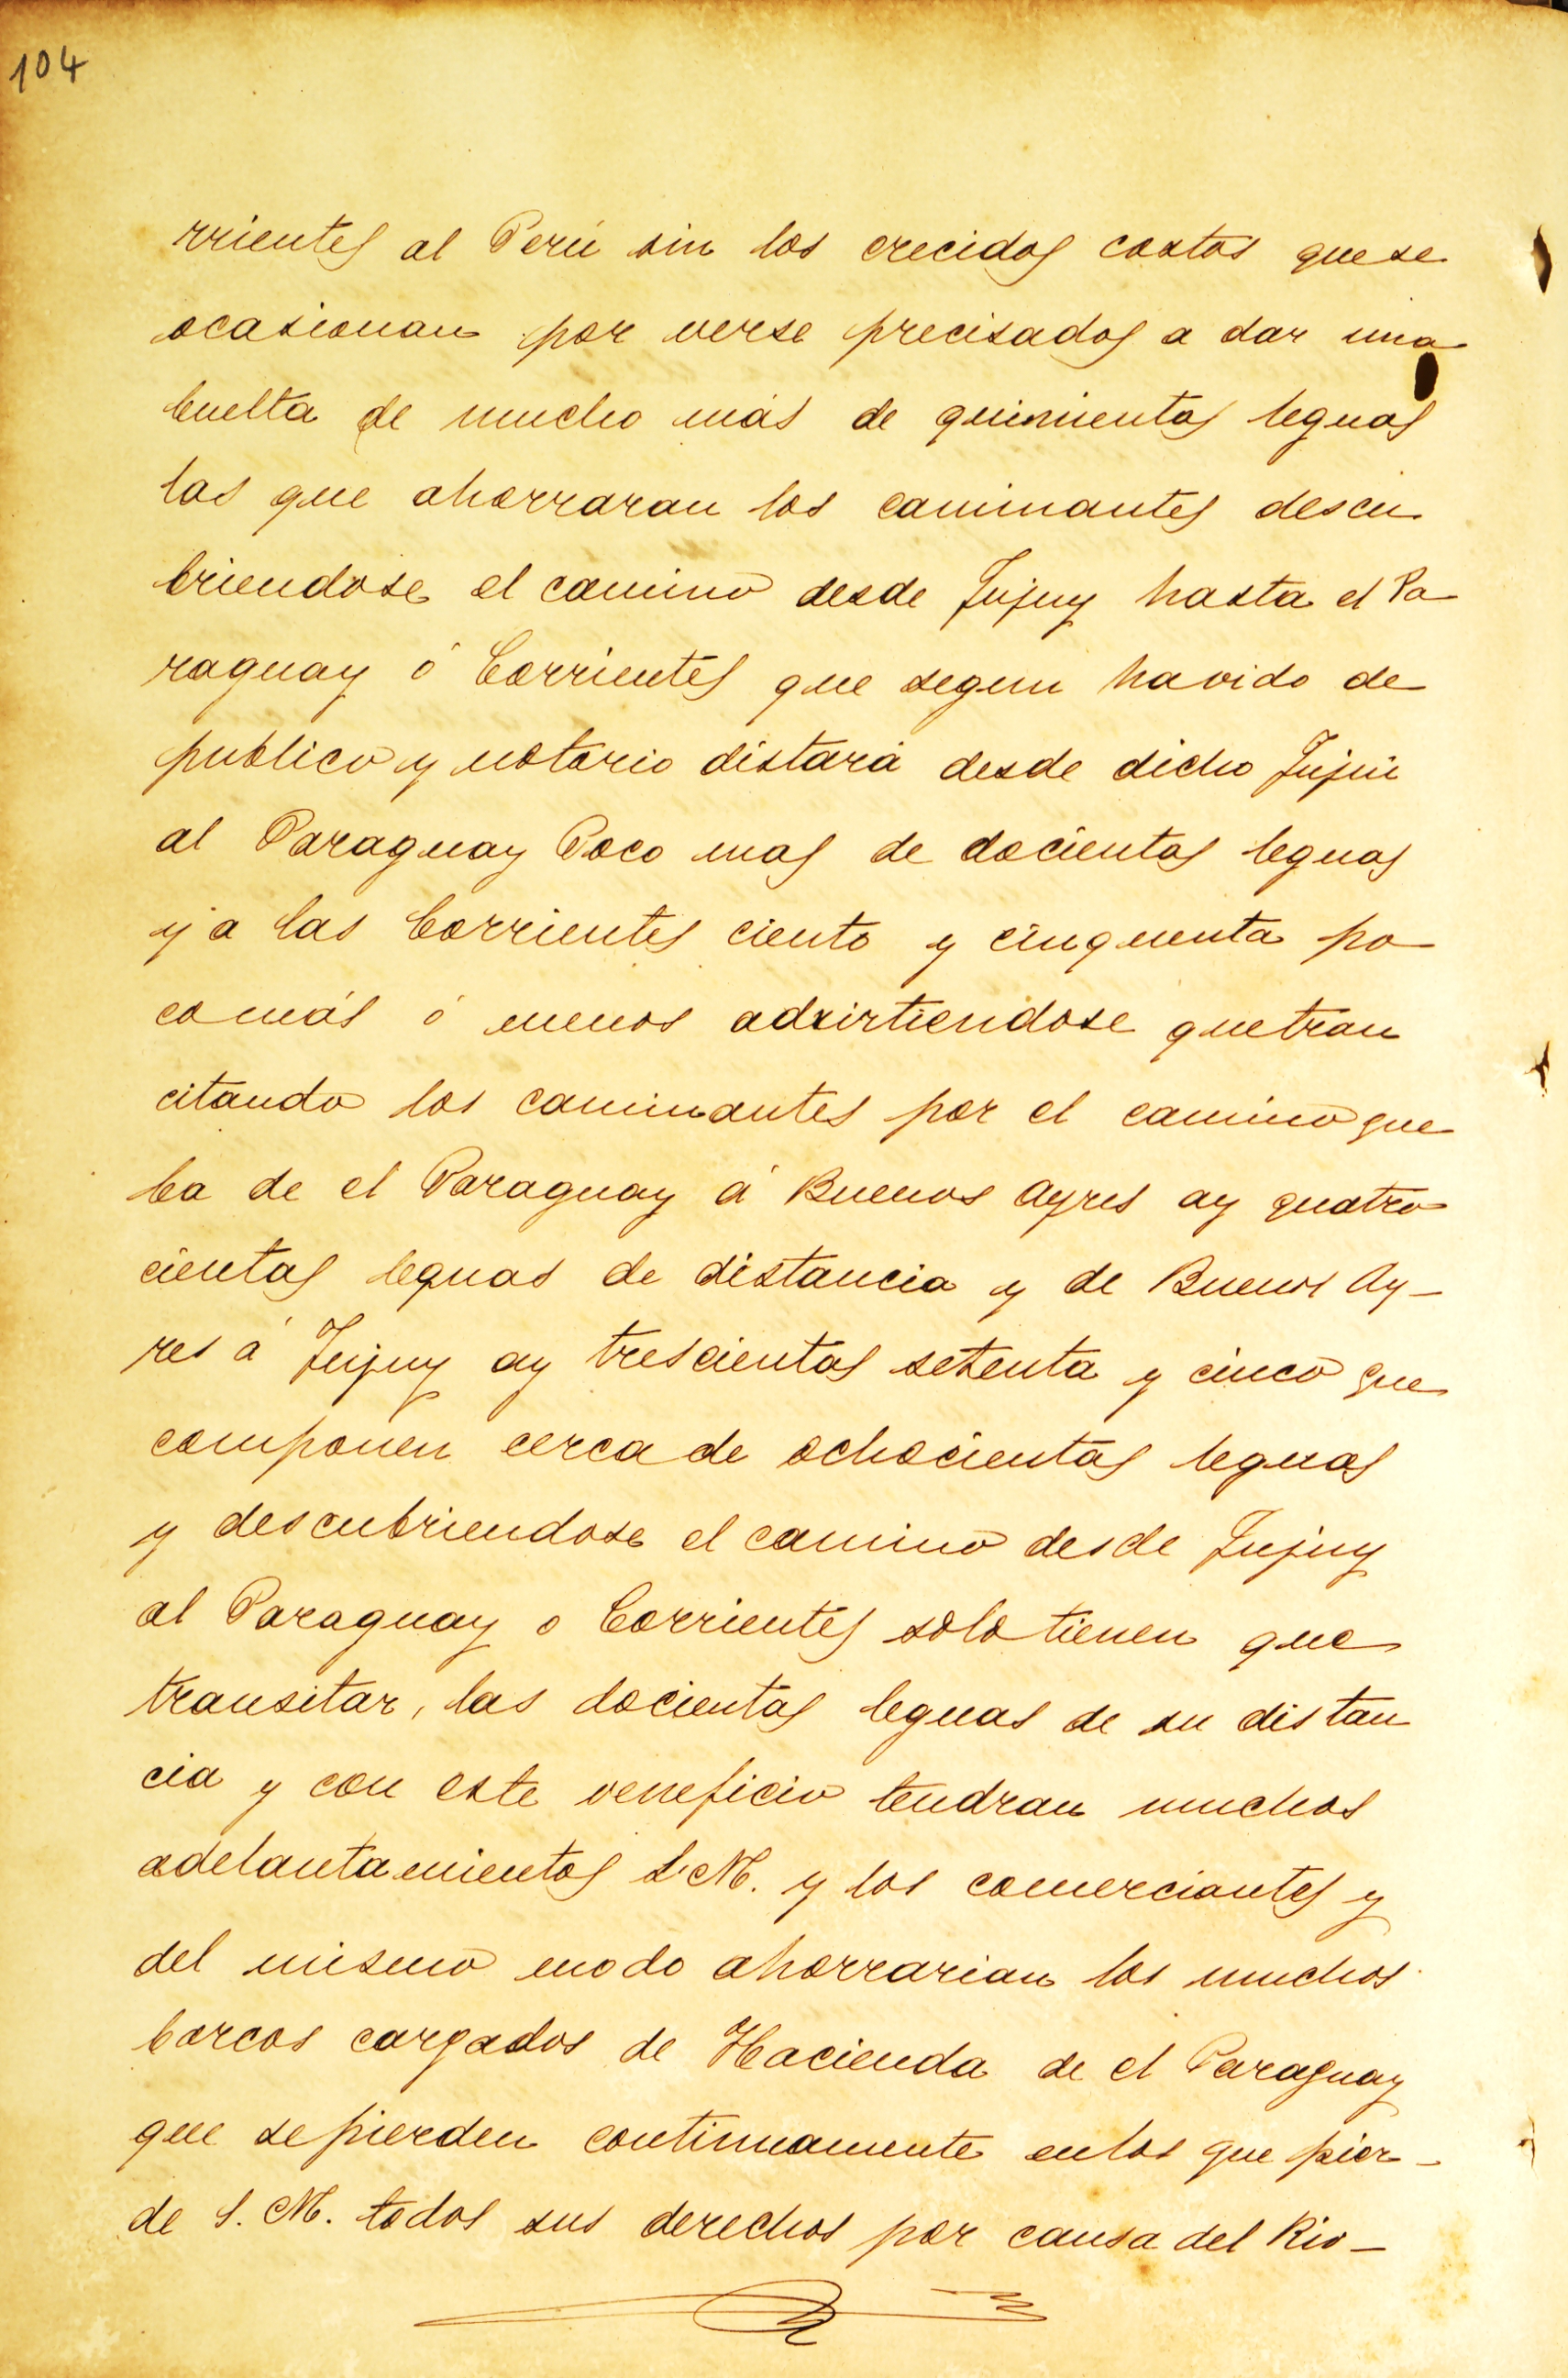 104
rrientes al Perú sin los crecidos costos que se
ocasionan por verse precisados a dar una
buelta de mucho más de quinientas leguas
las que ahorraran los caminantes descu
briendose el camino desde Jujuy hasta el Pa
raguay ó Corrientes que segun havido de
publico y notorio distará desde dicho Jujui
al Paraguay Poco mas de docientas leguas
y a las Corrientes ciento y cinquenta po
co más ó menos advirtiendose que tran
citando los caminantes por el camino que
ba de el Paraguay á Buenos Ayres ay quatro
cientas leguas de distancia y de Buenos Ay-
res á Jujuy ay trescientas setenta y cinco que
componen cerca de ochocientas leguas
y descubriendose el camino desde Jujuy
al Paraguay o Corrientes solo tienen que
transitar, las docientas leguas de su distan
cia y con este veneficio tendran muchos
adelantamientos S.M. y los comerciantes y
del mismo modo ahorrarian los muchos
barcos cargados de Hacienda de el Paraguay
que se pierden continuamente en los que pier-
de S. M. todos sus derechos por causa del Rio-